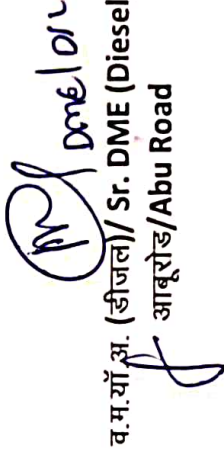 DME/Dsl
व.म.यॉं.अ. (डीजल)/ Sr. DME (Diesel
आबूरोड/Abu Road